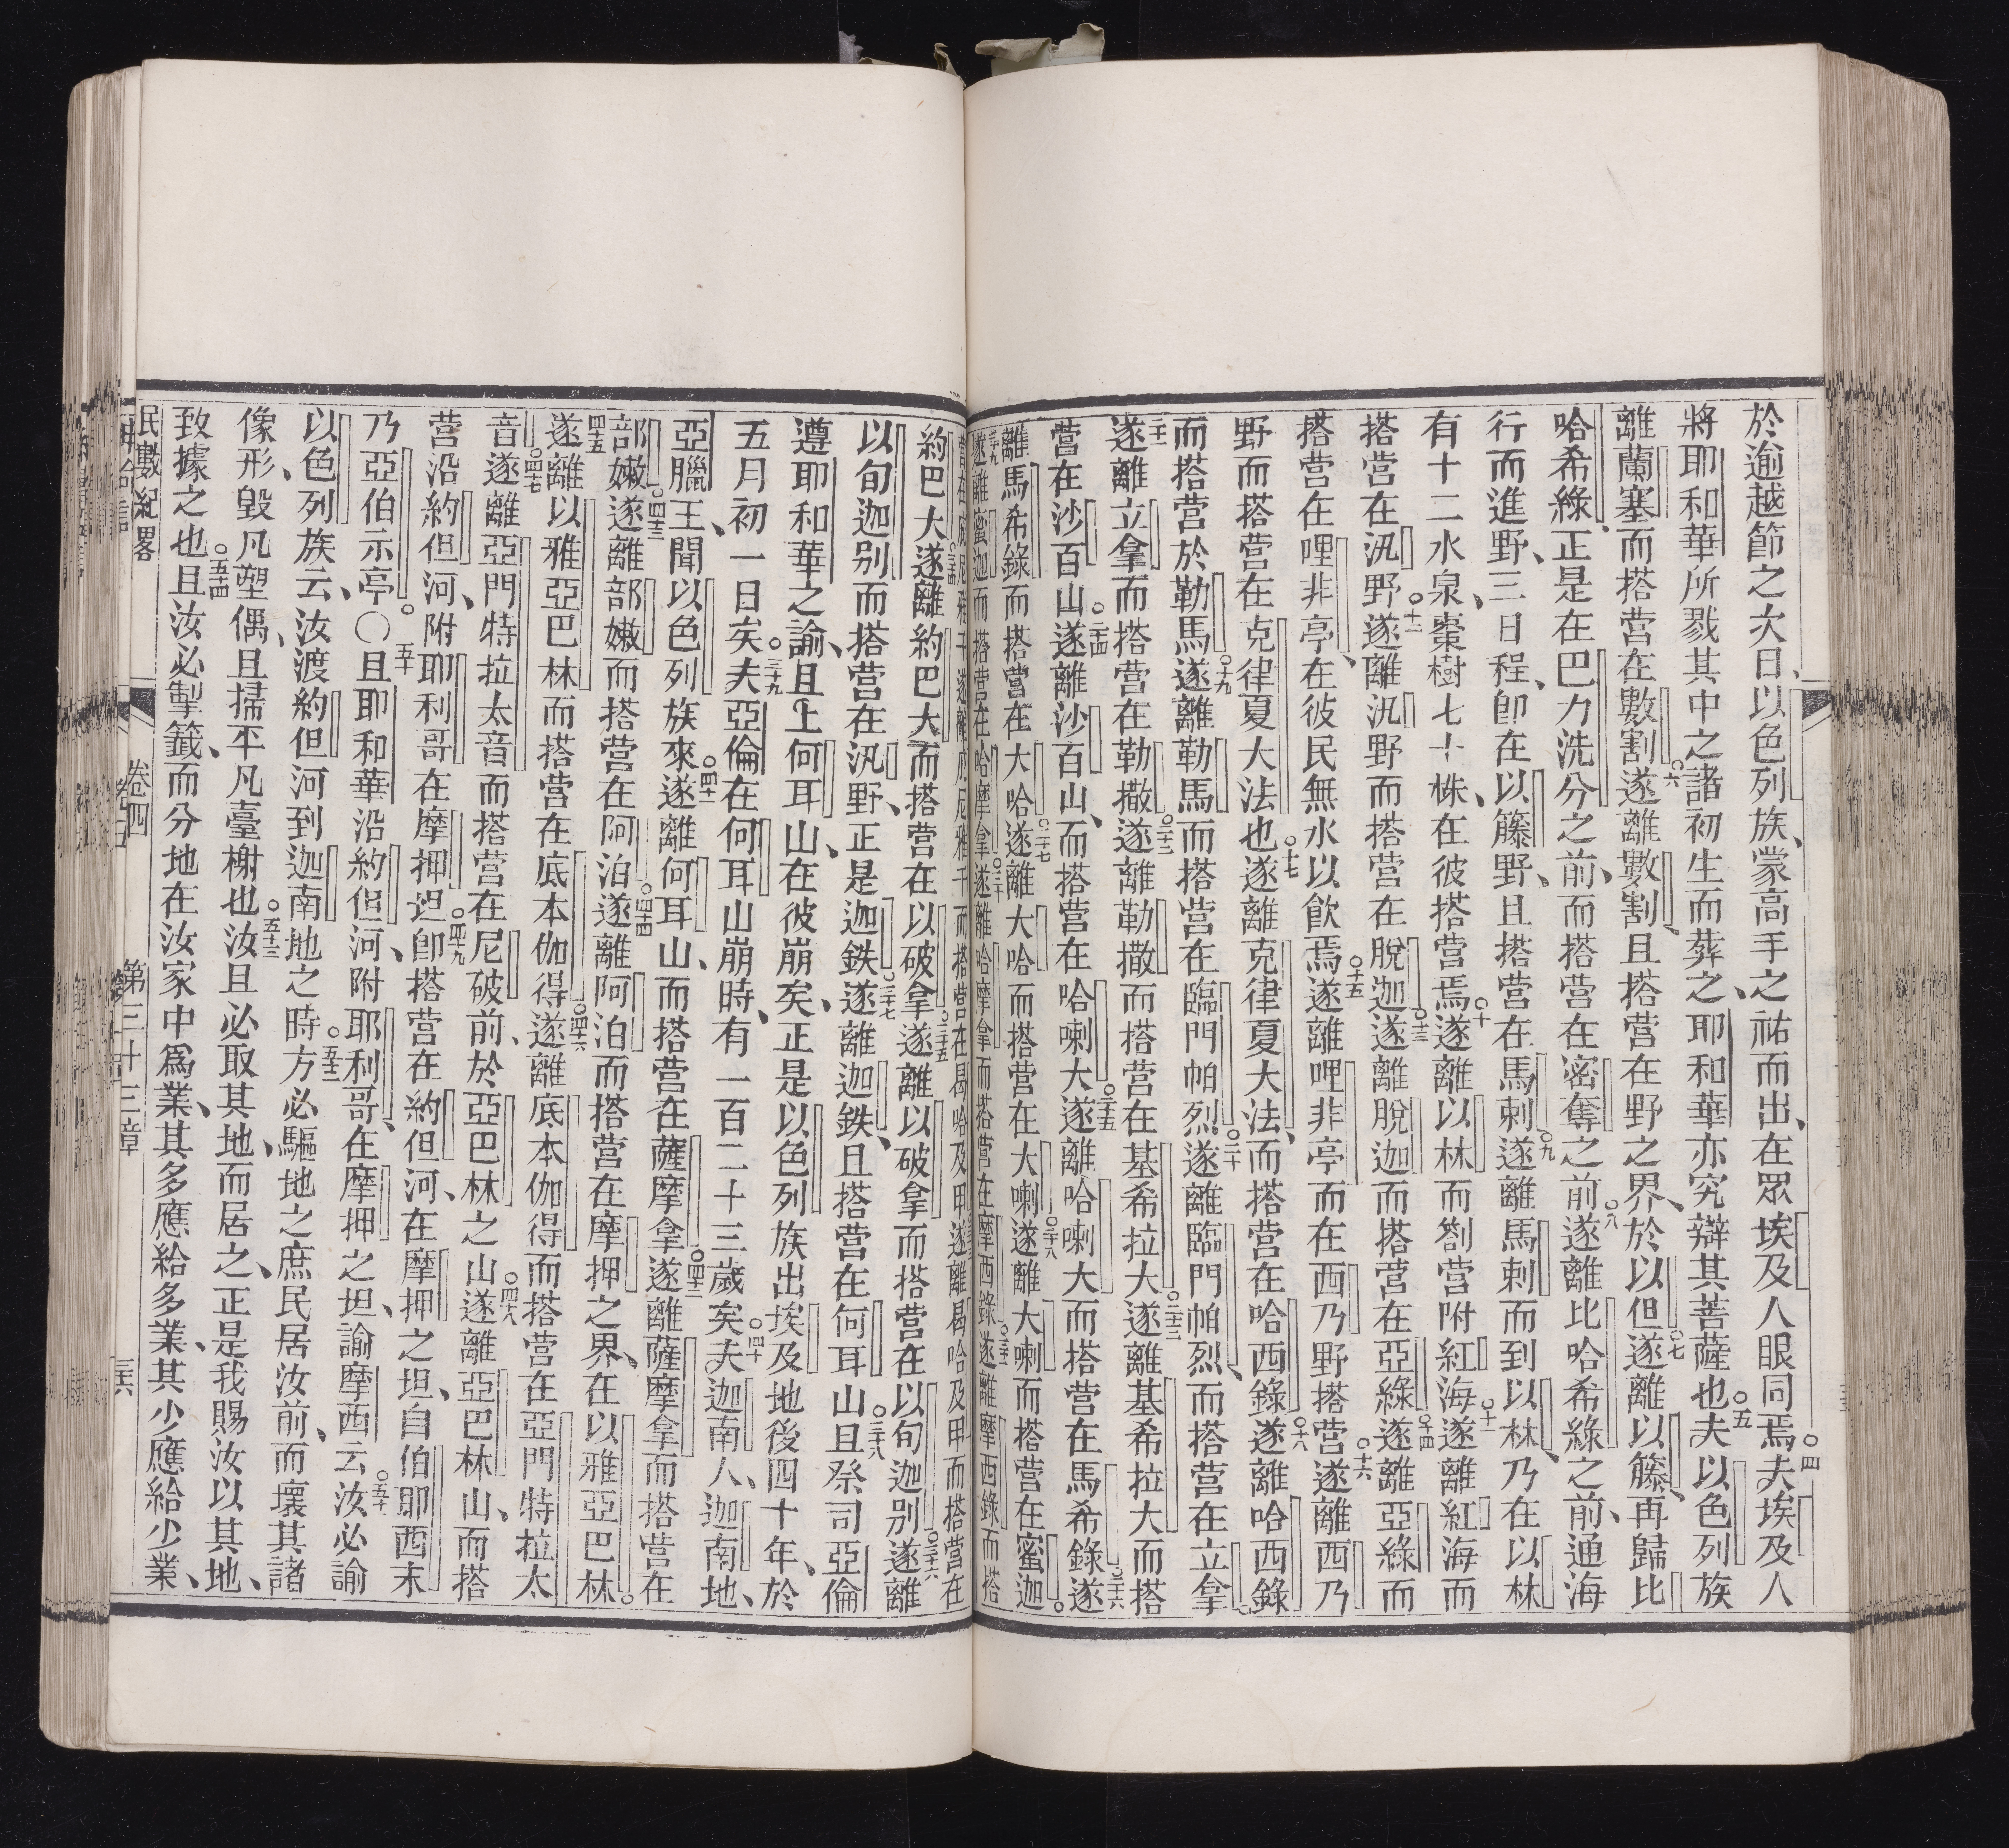 於逾越節之次日、以色列族、蒙高手之祐而出、在眾埃及人眼同焉○四夫埃及人
將耶和華所戮其中之諸初生而葬之、耶和華亦究辯其菩薩也○五夫以色列族
離蘭塞而搭營在數割○六遂離數割、且搭營在野之界、於以但○七遂離以籐、再歸比
哈希綠、正是在巴力洗分之前、而搭營在密奪之前○八遂離比哈希綠之前、通海
行而進野、三日程、卽在以籐野、且搭營在馬剌○九遂離馬剌而到以林、乃在以林
有十二水泉、棗樹七十株、在彼搭營焉○十遂離以林而劄營附紅海○十一遂離紅海而
搭營在汛野○十二遂離汛野而搭營在脫迦○十三遂離脫迦而搭營在亞綠○十四遂離亞綠而
搭營在哩非亭、在彼民無水以飲焉○十五遂離哩非亭而在西乃野搭營○十六遂離西乃
野而搭營在克律夏大法也○十七遂離克律夏大法、而搭營在哈西錄○十八遂離哈西錄
而搭營於勒馬○十九遂離勒馬而搭營在臨門帕烈○二十遂離臨門帕烈、而搭營在立拿、
○二十一遂離立拿而搭營在勒撒○二十二遂離勒撒而搭營在基希拉大○二十三遂離基希拉大而搭
營在沙百山○二十四遂離沙百山、而搭營在哈喇大○二十五遂離哈喇大而搭營在馬希錄○二十六遂
離馬希錄而搭營在大哈○二十七遂離大哈而搭營在大喇○二十八遂離大喇而搭營在蜜迦。
○二十九遂離蜜迦而搭營在哈摩拿○三十遂離哈摩拿而搭營在摩西錄○三十一遂離摩西錄而搭
營在庇尼雅干遂離庇尼雅干而搭營在曷哈及甲遂離曷哈及甲而搭營在
約巴大○三十四遂離約巴大而搭營在以破拿○三十五遂離以破拿而搭營在以旬迦別○三十六遂離
以旬迦別而搭營在汛野、正是迦鉄○三十七遂離迦鉄、且搭營在何耳山○三十八且祭司亞倫
遵耶和華之諭、且上何耳山、在彼崩矣、正是以色列族出埃及地後四十年、於
五月初一日矣○三十九夫亞倫在何耳山崩時、有一百二十三歲矣○四十夫迦南人、迦南地、
亞臘王、聞以色列族來○四十一遂離何耳山、而搭營在薩摩拿○四十二遂離薩摩拿而搭營在
部嫩○四十三遂離部嫩而搭營在阿泊○四十四遂離阿泊而搭營在摩押之界、在以雅亞巴林。
四十五遂離以雅亞巴林而搭營在底本伽得○四十六遂離底本伽得而搭營在亞門特拉太
音○四十七遂離亞門特拉太音而搭營在尼破前、於亞巴林之山○四十八遂離亞巴林山、而搭
營沿約但河、附耶利哥在摩押坦○四十九卽搭營在約但河、在摩押之坦、自伯耶西末
乃亞伯示亭。〇五十且耶和華沿約但河、附耶利哥、在摩押之坦、諭摩西云○五十一汝必諭
以色列族云、汝渡約但河到迦南地之時○五十二方必驅地之庶民居汝前、而壞其諸
像形、毀凡塑偶、且掃平凡臺榭也○五十三汝且必取其地、而居之、正是我賜汝以其地、
致據之也○五十四且汝必掣籤、而分地在汝家中為業、其多應給多業、其少應給少業、
民數紀畧 卷四 第三十三章